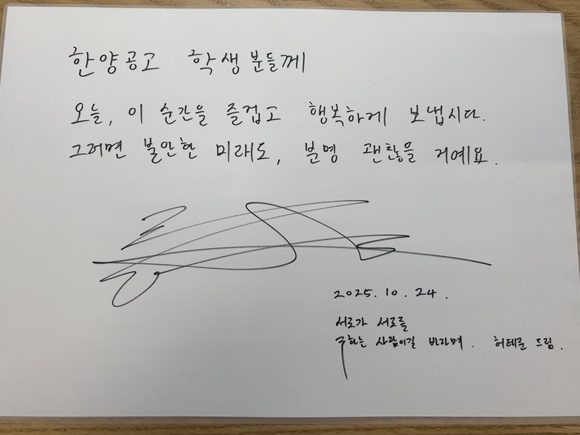 한양공고 학생분들께
오늘, 이 순간을 즐겁고 행복하게 보냅시다.
그러면 불안한 미래도, 분명 괜찮을 거예요.
2025. 10. 24.
서로가 서로를
구하는 사람이길 바라며. 허태준 드림.